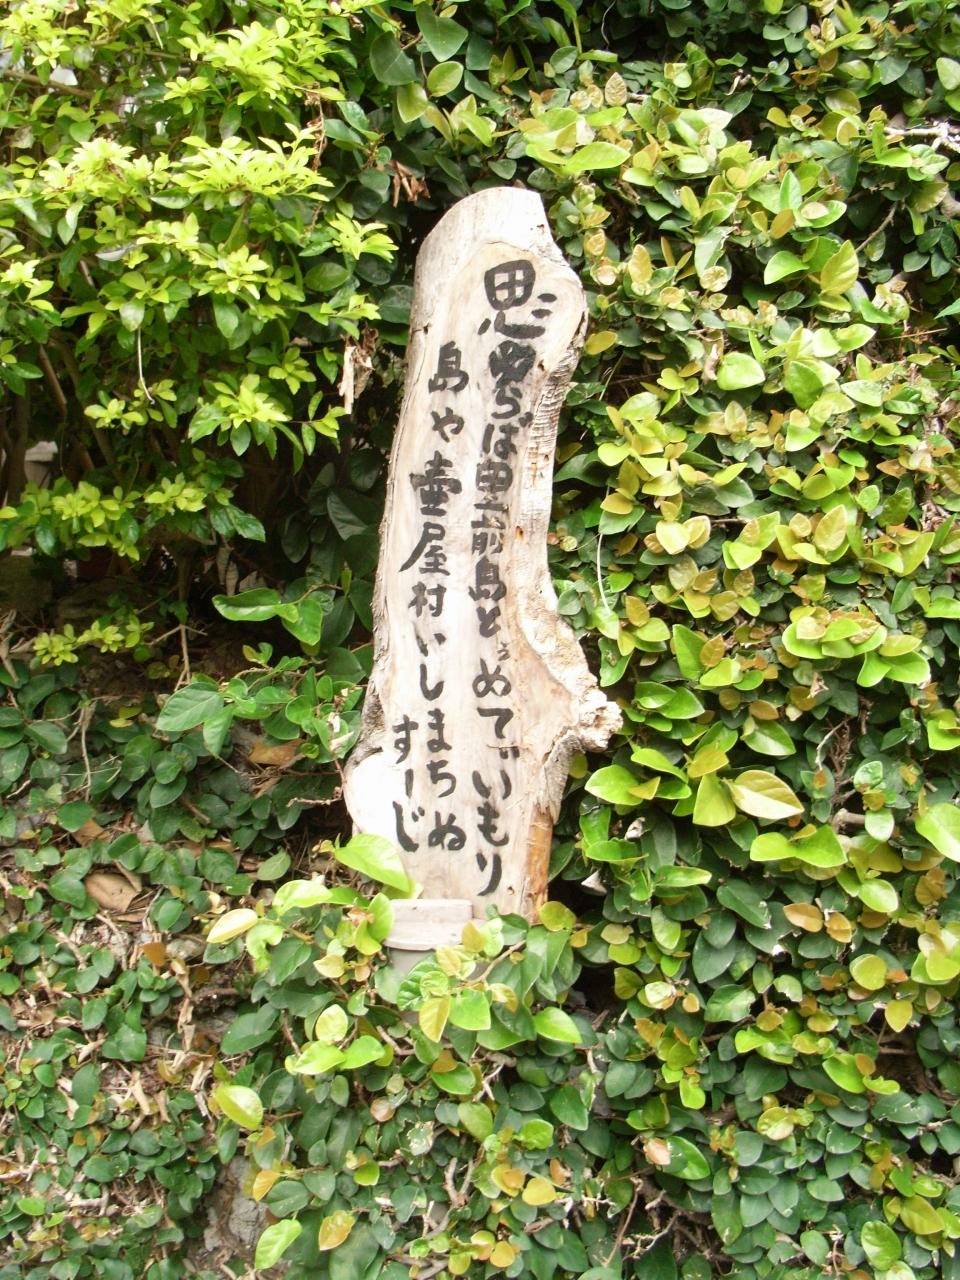 思ゆらば里前島とぅめていもり
島や壷屋村いしまちぬ
すーじ